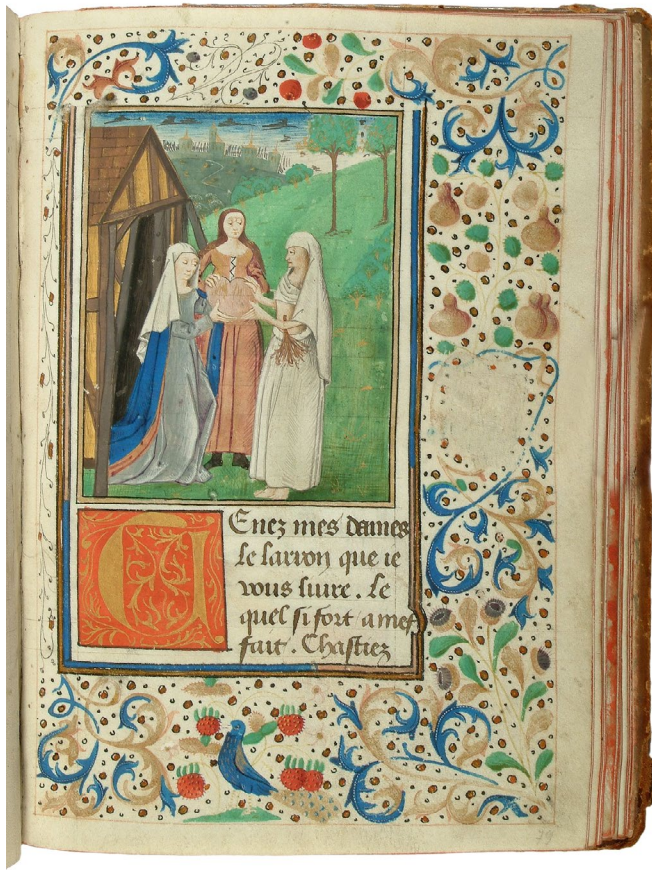 Tenez mes dames
le larron que ie
vous liure. Le
quel si fort a mes
fait. Chastiez